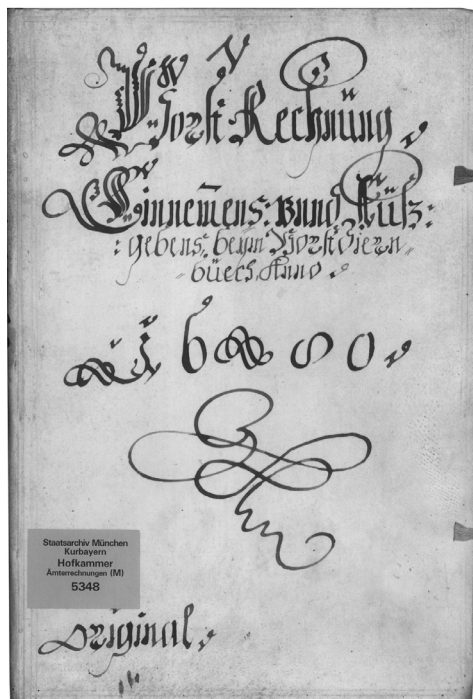 Vorst Rechnüng.
Einnemens: vnnd Auß:
:gebens, beym Vorst Diern=
=büech. Anno.
1680.
Staatsarchiv München
Kurbayern
Hofkammer
Ämterrechnungen (M)
5348
Original.